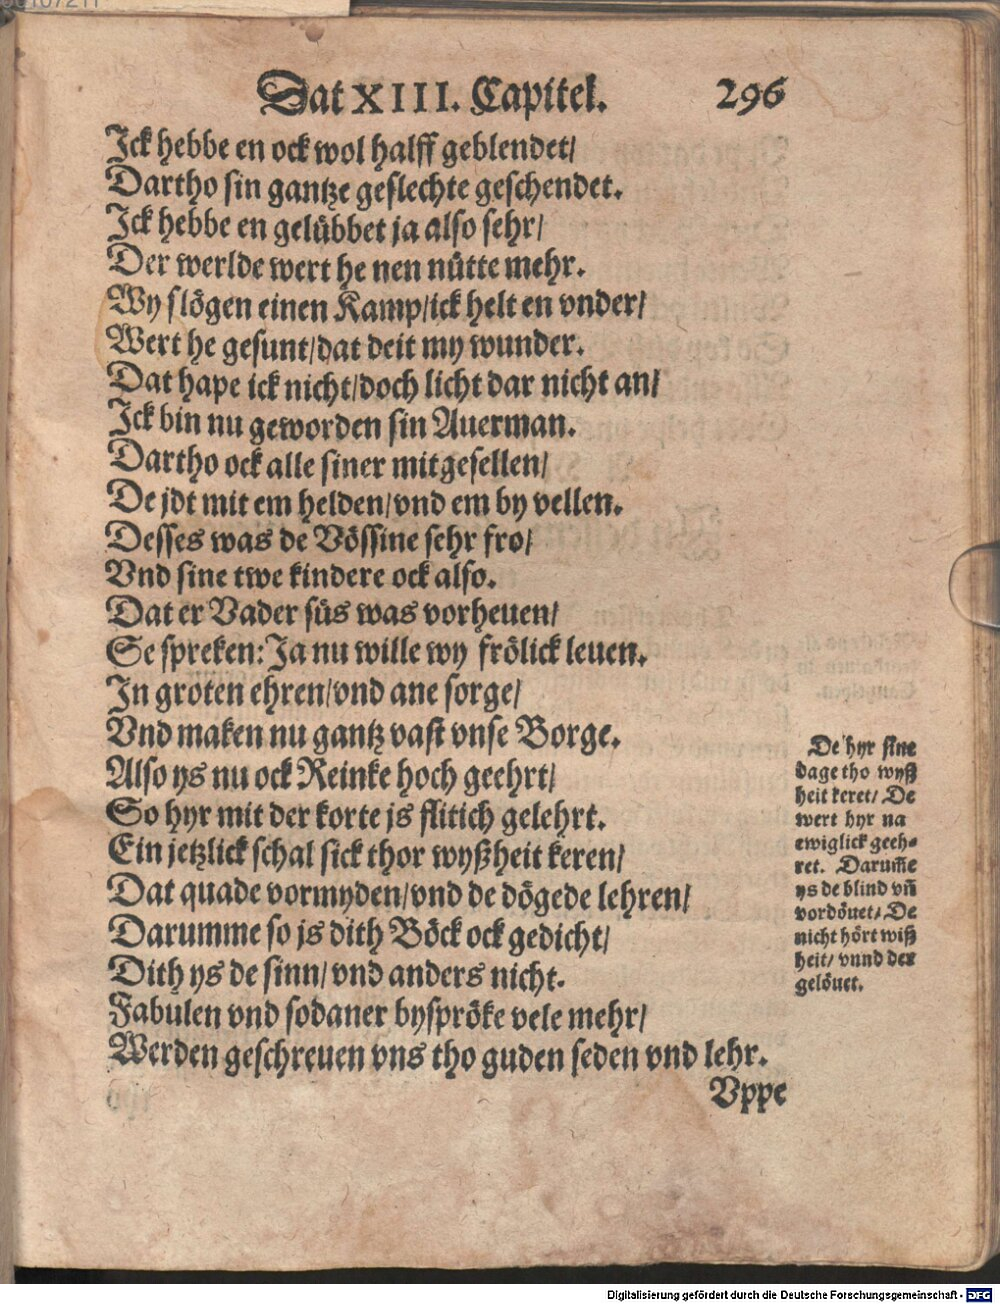 Dat XIII. Capitel. 296
Ick hebbe en ock wol halff geblendet/
Dartho sin gantze geslechte geschendet.
Ick hebbe en gelübbet ja also sehr/
Der werlde wert he nen nütte mehr.
Wy slögen einen Kamp/ick helt en vnder/
Wert he gesunt/dat deit my wunder.
Dat hape ick nicht/doch licht dar nicht an/
Ick bin nu geworden sin Auerman.
Dartho ock alle siner mitgesellen/
De jdt mit em helden/vnd em by vellen.
Desses was de Vössine sehr fro/
Vnd sine twe kindere ock also.
Dat er Vader süs was vorheuen/
Se spreken: Ja nu wille wy frölick leuen.
In groten ehren/vnd ane sorge/
Vnd maken nu gantz vast vnse Borge.
Also ys nu ock Reinke hoch geehrt/
So hyr mit der korte js flitich gelehrt.
Ein jetzlick schal sick thor wyßheit keren/
Dat quade vormyden/vnd de dögede lehren/
Darumme so js dith Böck ock gedicht/
Dith ys de sinn/vnd anders nicht.
Fabulen vnd sodaner byspröke vele mehr/
Werden geschreuen vns tho guden seden vnd lehr.
Vppe
De hyr sine
dage tho wyß
heit keret/ De
wert hyr na
ewiglick geeh-
ret. Darum̃e
ys de blind vn̄
vordöuet/ De
nicht hört wiß
heit/ vnnd der
gelöuet.
Digitalisierung gefördert durch die Deutsche Forschungsgemeinschaft - DFG